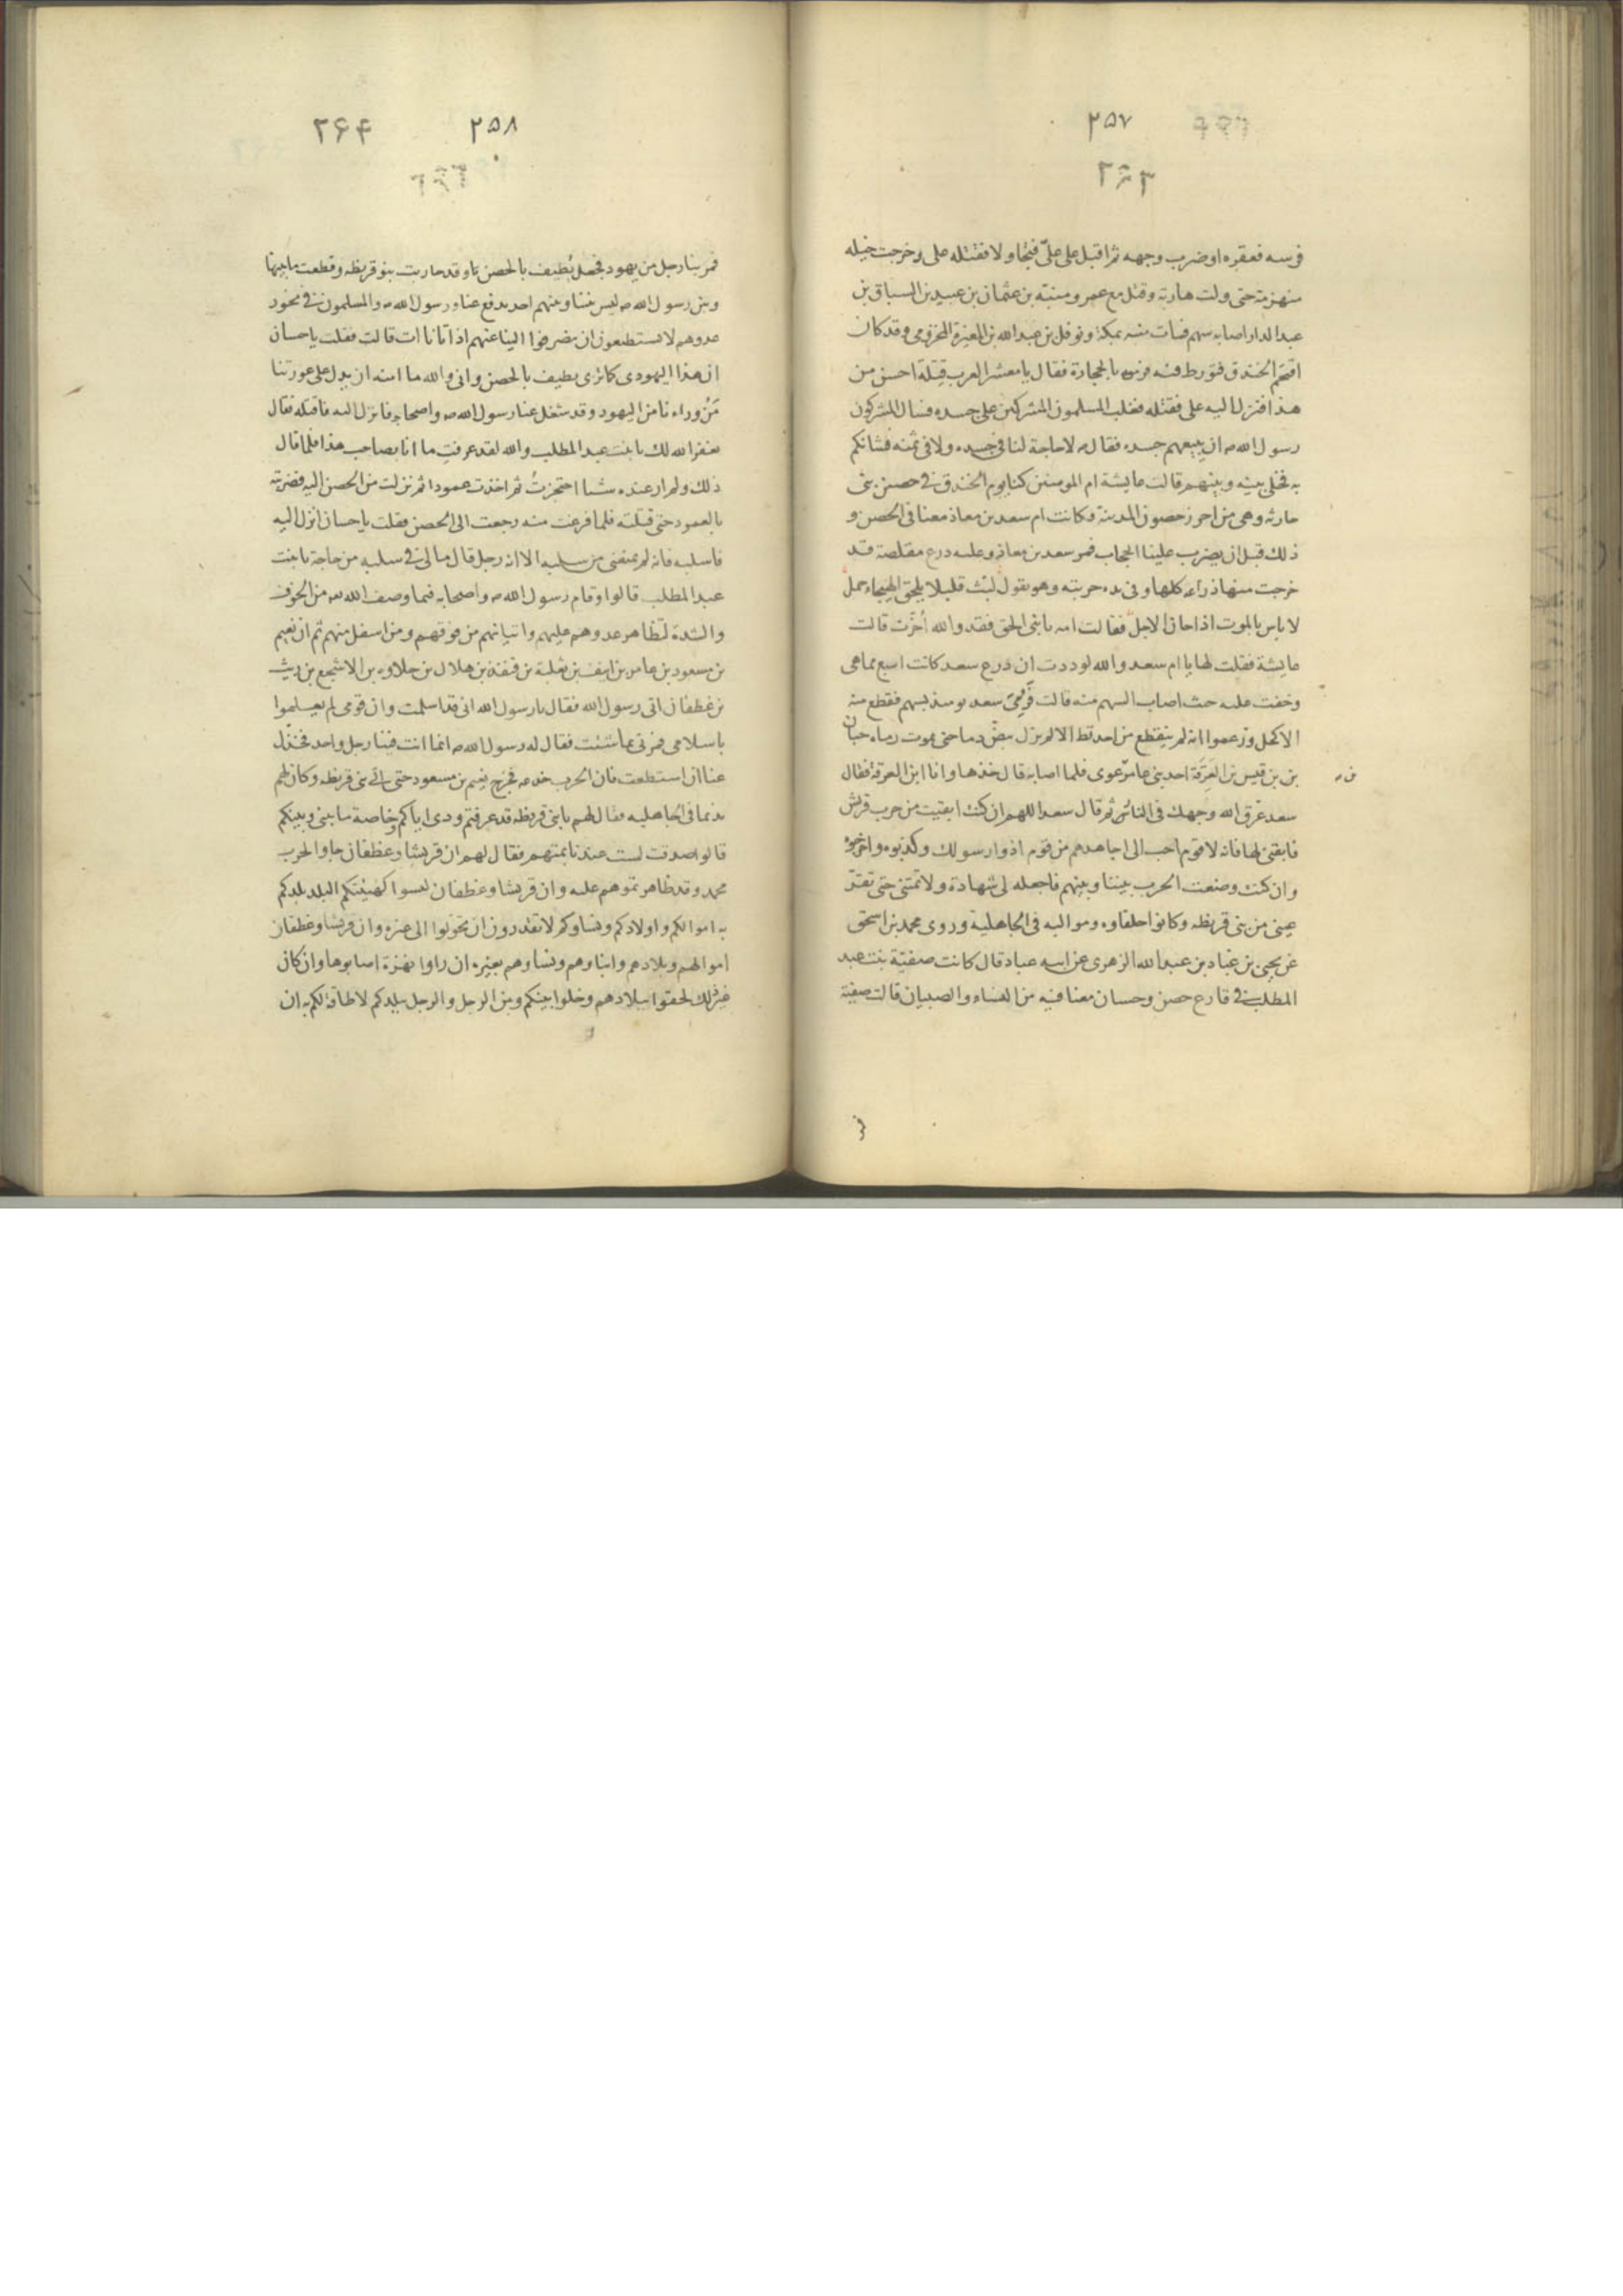 ۲۵۷
۲۶۳
فرسه فعقره او ضرب وجهه ثم اقبل على علىّ فتجاولا فقتله على وخرجت خيله
منهزمة حتى ولت هاربة وقتل مع عمرو منبّه بن عثمان بن عبيد بن السباق بن
عبد الدار اصابه سهم فمات منه بمكة ونوفل بن عبد الله بن المغيرة المخزومى وقد كان
اقتحم الخندق فتورط فيه فرموه بالحجارة فقال يا معشر العرب قِتلة احسن من
هذا فنزل اليه على فقتله فغلب المسلمون المشركين على جسده فسال المشركون
رسول الله ص ان يبيعهم جسده فقال ص لا حاجة لنا فى جسده ولا فى ثمنه فشانكم
به فخلى بينه وبينهم قالت عايشة ام المومنين كنا يوم الخندق فى حصن بنى
حارثه وهى من احرز حصون المدينة وكانت ام سعد بن معاذ معنا فى الحصن و
ذلك قبل ان يضرب علينا الحجاب فمر سعد بن معاذ وعليه درع مقلصة قد
خرجت منها ذراعه كلها وفى يده حربته وهو يقول لبّث قليلا يلحق الهيجاء حمل
لا باس بالموت اذا حان الاجل فقالت امه يا بنى الحق فقد والله اُخّرت قالت
عايشة فقلت لها يا ام سعد والله لوددت ان درع سعد كانت اسبغ مما هى
وخفت عليه حيث اصاب السهم منه قالت فرُمِىَ سعد يومئذ بسهم فقطع منه
الاكحل وزعموا انه لم ينقطع من احد قط الا لم يزل يبضّ دما حتى يموت رماه حبان
بن قيس بن العَرِقَة احد بنى عامر عوى فلما اصابه قال خذها وانا ابن العرقة فقال
سعد عرق الله وجهك فى النار ثم قال سعد اللهم ان كنت ابقيت من حرب قريش
فابقنى لها فانه لا قوم احب الى اجاهدهم من قوم اذوا رسولك وكذبوه واخرجوه
وان كنت وضعت الحرب بيننا وبينهم فاجعله لى شهادة ولا تمتنى حتى تقرّ
عينى من بنى قريظه وكانوا حلفاوه ومواليه فى الجاهلية وروى محمد بن اسحق
عن يحيى بن عباد بن عبد الله الزهرى عن ابيه عباد قال كانت صفيّة بنت عبد
المطلب فى قارع حصن وحسان معنا فيه من النساء والصبيان قالت صفية
۲۵۸
۲۶۴
فمر بنا رجل من يهود فجعل يُطيف بالحصن وقد حاربت بنو قريظه وقطعت ما بينها
وبين رسول الله ص ليس بيننا وبينهم احد يدفع عنا ورسول الله ص والمسلمون فى نحور
عدوهم لا يستطيعون ان ينصرفوا الينا عنهم اذ اتانا ات قالت فقلت يا حسان
ان هذا اليهودى كما ترى يطيف بالحصن وانى والله ما امنه ان يدل على عورتنا
مَن وراءنا من اليهود وقد شغل عنا رسول الله ص واصحابه فانزل اليه فاقتله فقال
يغفر الله لك يا بنت عبد المطلب والله لقد عرفت ما انا بصاحب هذا فلما قال
ذلك ولم ار عنده شيا احتجزتُ ثم اخذت عمودا ثم نزلت من الحصن اليه فضربته
بالعمود حتى قتلته فلما فرغت منه رجعت الى الحصن فقلت يا حسان انزل اليه
فاسلبه فانه لم يمنعنى من سلبه الا انه رجل قال ما لى فى سلبه من حاجة يا بنت
عبد المطلب قالوا وقام رسول الله ص واصحابه فيما وصف الله من الخوف
والشدة لتظاهر عدوهم عليهم واتيانهم من فوقهم ومن اسفل منهم ثم ان نعيم
بن مسعود بن عامر بن انيف بن ثعلبة بن قنفذ بن هلال بن حلاوه بن الاشجع بن ريث
بن غطفان اتى رسول الله فقال يا رسول الله انى قد اسلمت وان قومى لم يعلموا
باسلامى فمرنى بما شئت فقال له رسول الله ص انما انت فينا رجل واحد فخذّل
عنا ان استطعت فان الحرب خدعه فخرج نعيم بن مسعود حتى اتى بنى قريظه وكان لهم
نديما فى الجاهليه فقال لهم يا بنى قريظه قد عرفتم ودى اياكم وخاصة ما بينى وبينكم
قالوا صدقت لست عندنا بمتهم فقال لهم ان قريشا وغطفان جاوا لحرب
محمد وقد ظاهرتموهم عليه وان قريشا وغطفان ليسوا كهيئتكم البلد بلدكم
به اموالكم واولادكم ونساوكم لا تقدرون ان تحولوا الى غيره وان قريشا وغطفان
اموالهم وبلادهم وابناوهم ونساوهم بغيره ان راوا نهزة اصابوها وان كان
غير ذلك لحقوا ببلادهم وخلوا بينكم وبين الرجل والرجل ببلدكم لا طاقة لكم به ان